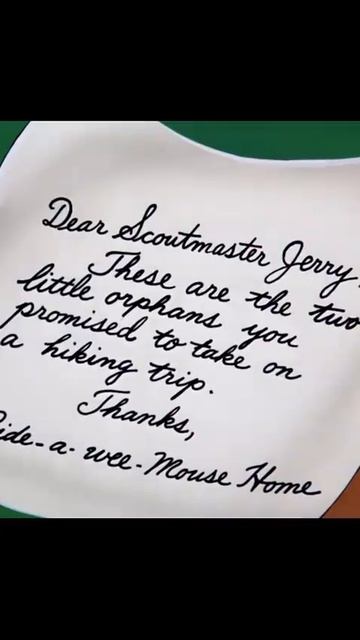 Dear Scoutmaster Jerry.
These are the two
little orphans you
promised to take on
a hiking trip.
Thanks,
ide-a-wee-Mouse Home